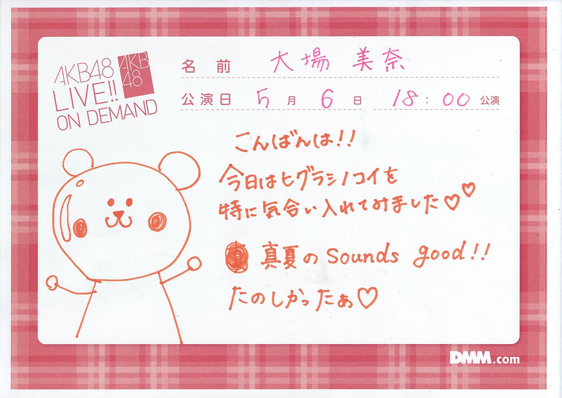 AKB48
LIVE!!
ON DEMAND
AKB
48
名前 大場美奈
公演日 5月6日 18:00公演
こんばんは!!
今日はヒグラシノコイを
特に気合い入れてみました♡♡
真夏のSounds good!!
たのしかったぁ♡
DMM.com